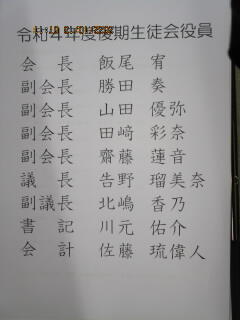 令和4年度後期生徒会役員
会長 飯尾 宥
副会長 勝田 奏
副会長 山田 優弥
副会長 田﨑 彩奈
副会長 齋藤 蓮音
議長 告野 瑠美奈
副議長 北嶋 香乃
書記 川元 佑介
会計 佐藤 琉偉人